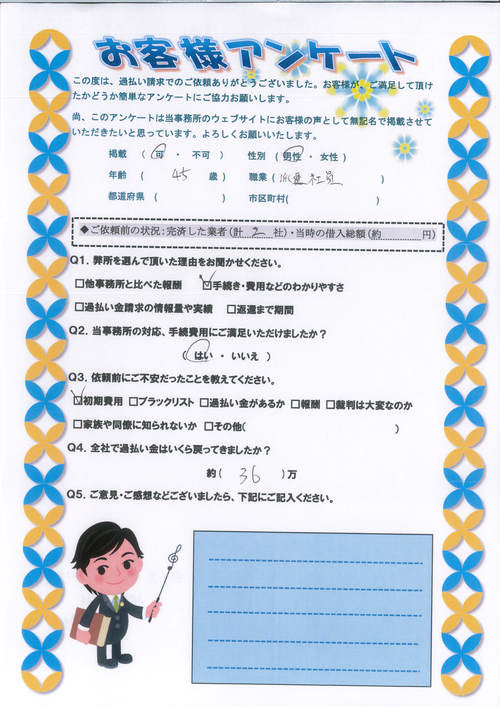 お客様アンケート
この度は、過払い請求でのご依頼ありがとうございました。お客様が、ご満足して頂け
たかどうか簡単なアンケートにご協力お願いします。
尚、このアンケートは当事務所のウェブサイトにお客様の声として無記名で掲載させて
いただきたいと思っています。よろしくお願いいたします。
掲載 ( 可 ・ 不可 ) 性別 ( 男性 ・ 女性 )
年齢 ( 45 歳 ) 職業 ( 派遣社員 )
都道府県 ( ) 市区町村( )
◆ご依頼前の状況：完済した業者(計 2 社)・当時の借入総額(約 円)
Q1. 弊所を選んで頂いた理由をお聞かせください。
□他事務所と比べた報酬 ☑手続き・費用などのわかりやすさ
□過払い金請求の情報量や実績 □返還まで期間
Q2. 当事務所の対応、手続費用にご満足いただけましたか？
( はい ・ いいえ )
Q3. 依頼前にご不安だったことを教えてください。
☑初期費用 □ブラックリスト □過払い金があるか □報酬 □裁判は大変なのか
□家族や同僚に知られないか □その他( )
Q4. 全社で過払い金はいくら戻ってきましたか？
約( 36 )万
Q5. ご意見・ご感想などございましたら、下記にご記入ください。